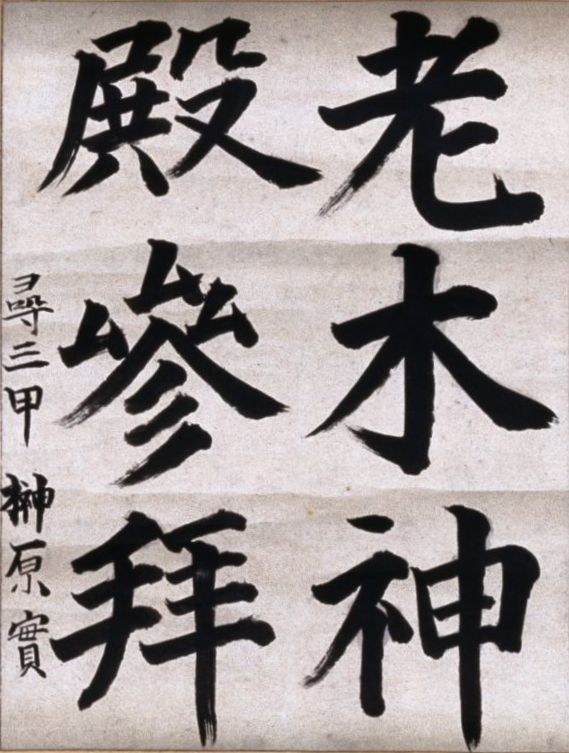 老木神
殿參拜
尋三甲 榊原實